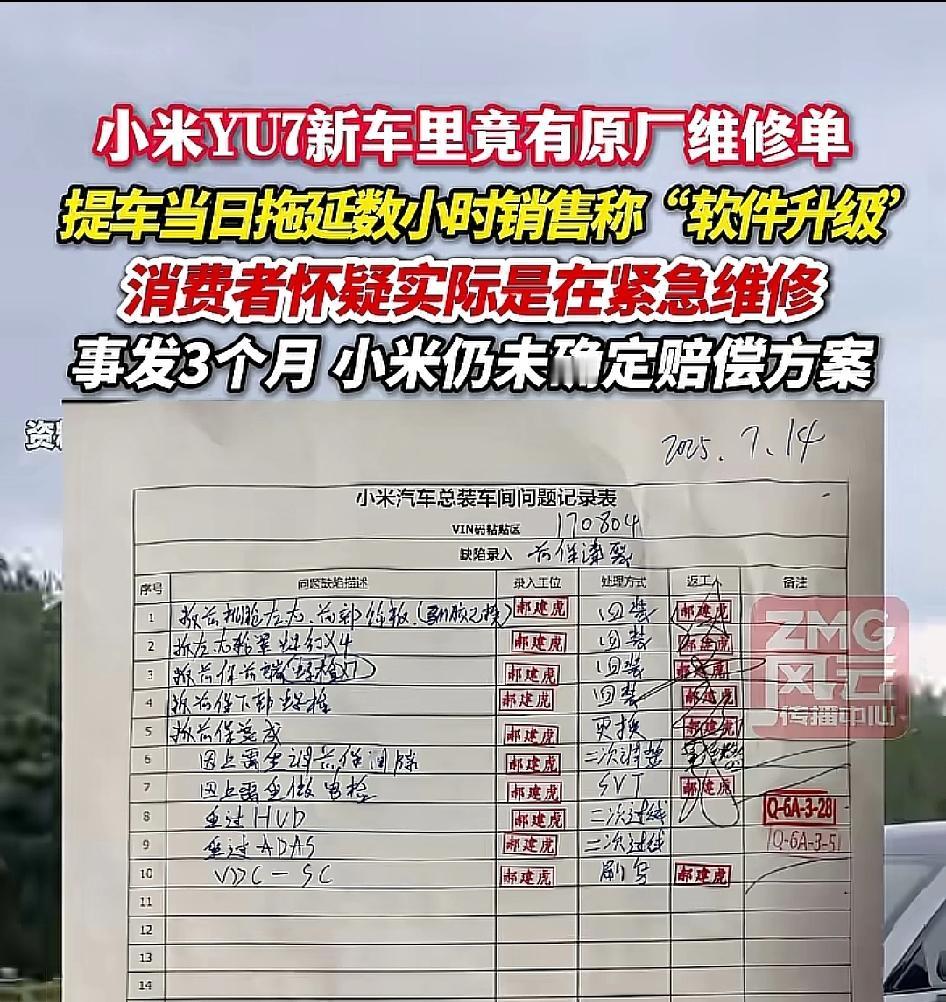 小米YU7新车里竟有原厂维修单
提车当日拖延数小时销售称“软件升级”
消费者怀疑实际是在紧急维修
事发3个月 小米仍未确定赔偿方案
资
2025.7.14
小米汽车总装车间问题记录表
VIN码粘贴区 170804
缺陷录入 前保漆裂
序号 问题缺陷描述 录入工位 处理方式 返工 备注
1 郝建虎 回装 郝建虎
2 郝建虎 回装 郝建虎
3 郝建虎 回装 郝建虎
4 拆前保下部 郝建虎 回装 郝建虎
5 拆前保总成 郝建虎 更换 郝建虎
6 因上需重调前保间隙 郝建虎 二次调整
7 因上需重做电检 郝建虎 SVT 郝建虎
8 重过HUD 郝建虎 二次过线 Q-6A-3-28
9 重过ADAS 郝建虎 二次过线 Q-6A-3-5
10 VDC-SC 郝建虎 刷写 郝建虎
11
12
13
14
ZMG
风云
传播中心